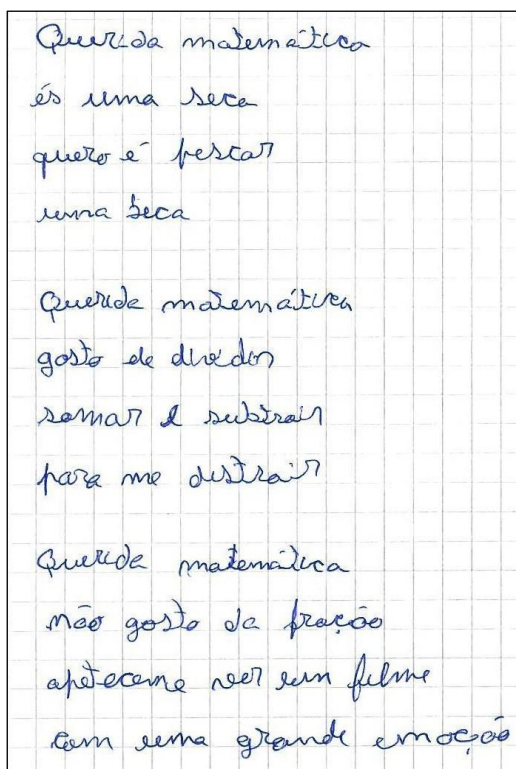 Querida matemática
és uma seca
quero é pescar
uma seca
Querida matemática
gosto de dividir
somar e subtrair
para me distrair
Querida matemática
não gosto da fração
apeteceme ver um filme
com uma grande emoção